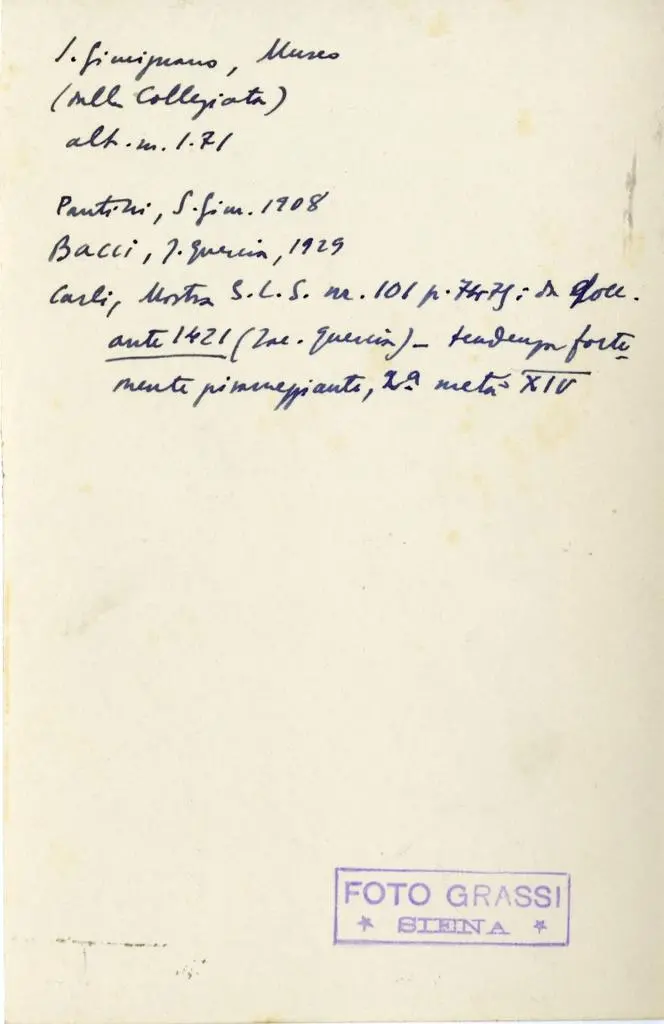 S. Gimignano, Museo
(della Collegiata)
alt. m. 1.71
Pantini, S. Gim. 1908
Bacci, J. Quercia, 1929
Carli, Mostra S.L.S. nr. 101 p. 74-75: da doc.
ante 1421 (Jac. Quercia) – tendenza forte
mente pisaneggiante, 2ª metà XIV
FOTO GRASSI
* SIENA *